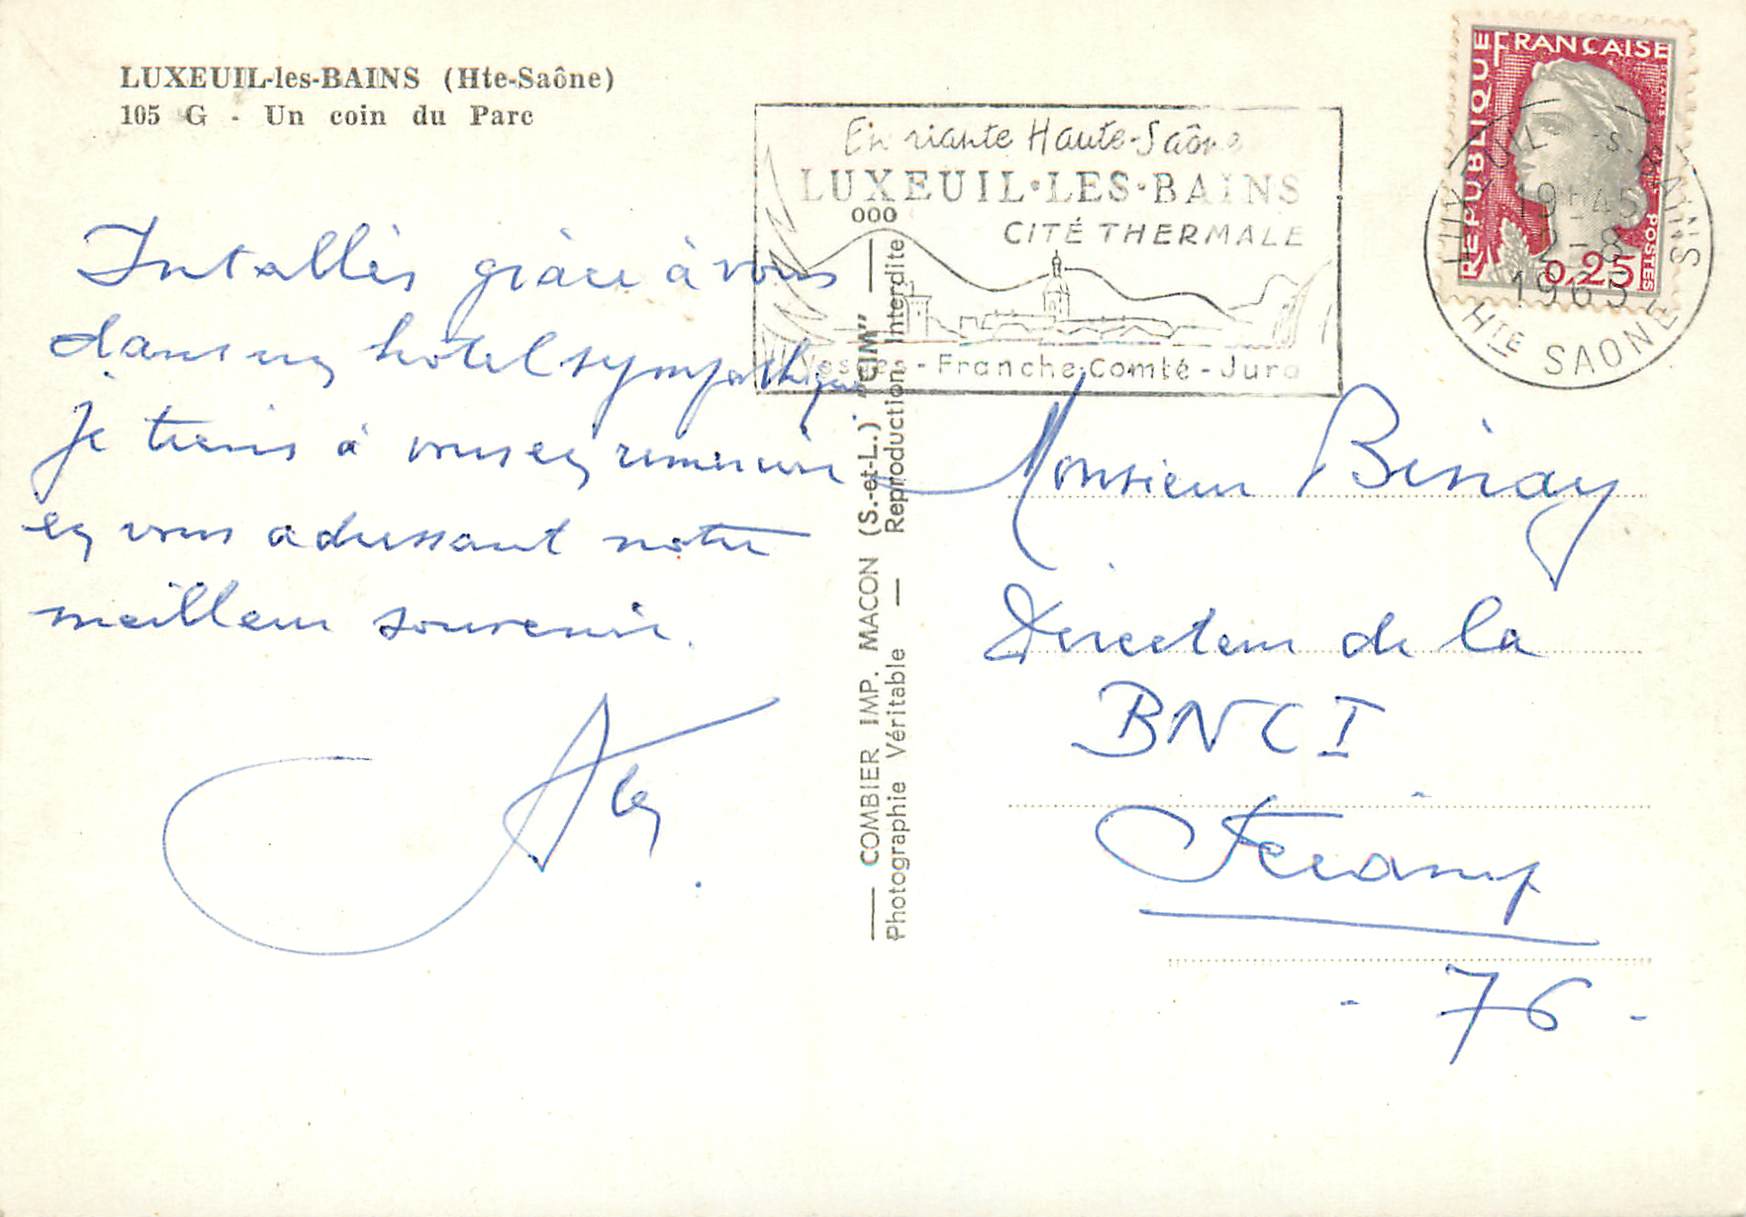 LUXEUIL-les-BAINS (Hte-Saône)
105 G - Un coin du Parc
Intallés grâce à vous
dans un hôtel sympathique
Je tiens à vous en remercier
en vous adressant notre
meilleur souvenir.
COMBIER IMP. MACON (S.-et-L.) "CIM"
Photographie Véritable — Reproduction interdite
En riante Haute-Saône
LUXEUIL·LES·BAINS
CITÉ THERMALE
Vosges - Franche-Comté - Jura
REPUBLIQUE FRANÇAISE
POSTES
0,25
LUXEUIL-LES-BAINS
19H45
2-8
196
HTE SAONE
Monsieur Binay
Directeur de la
BNCI
Fécamp
- 76 -